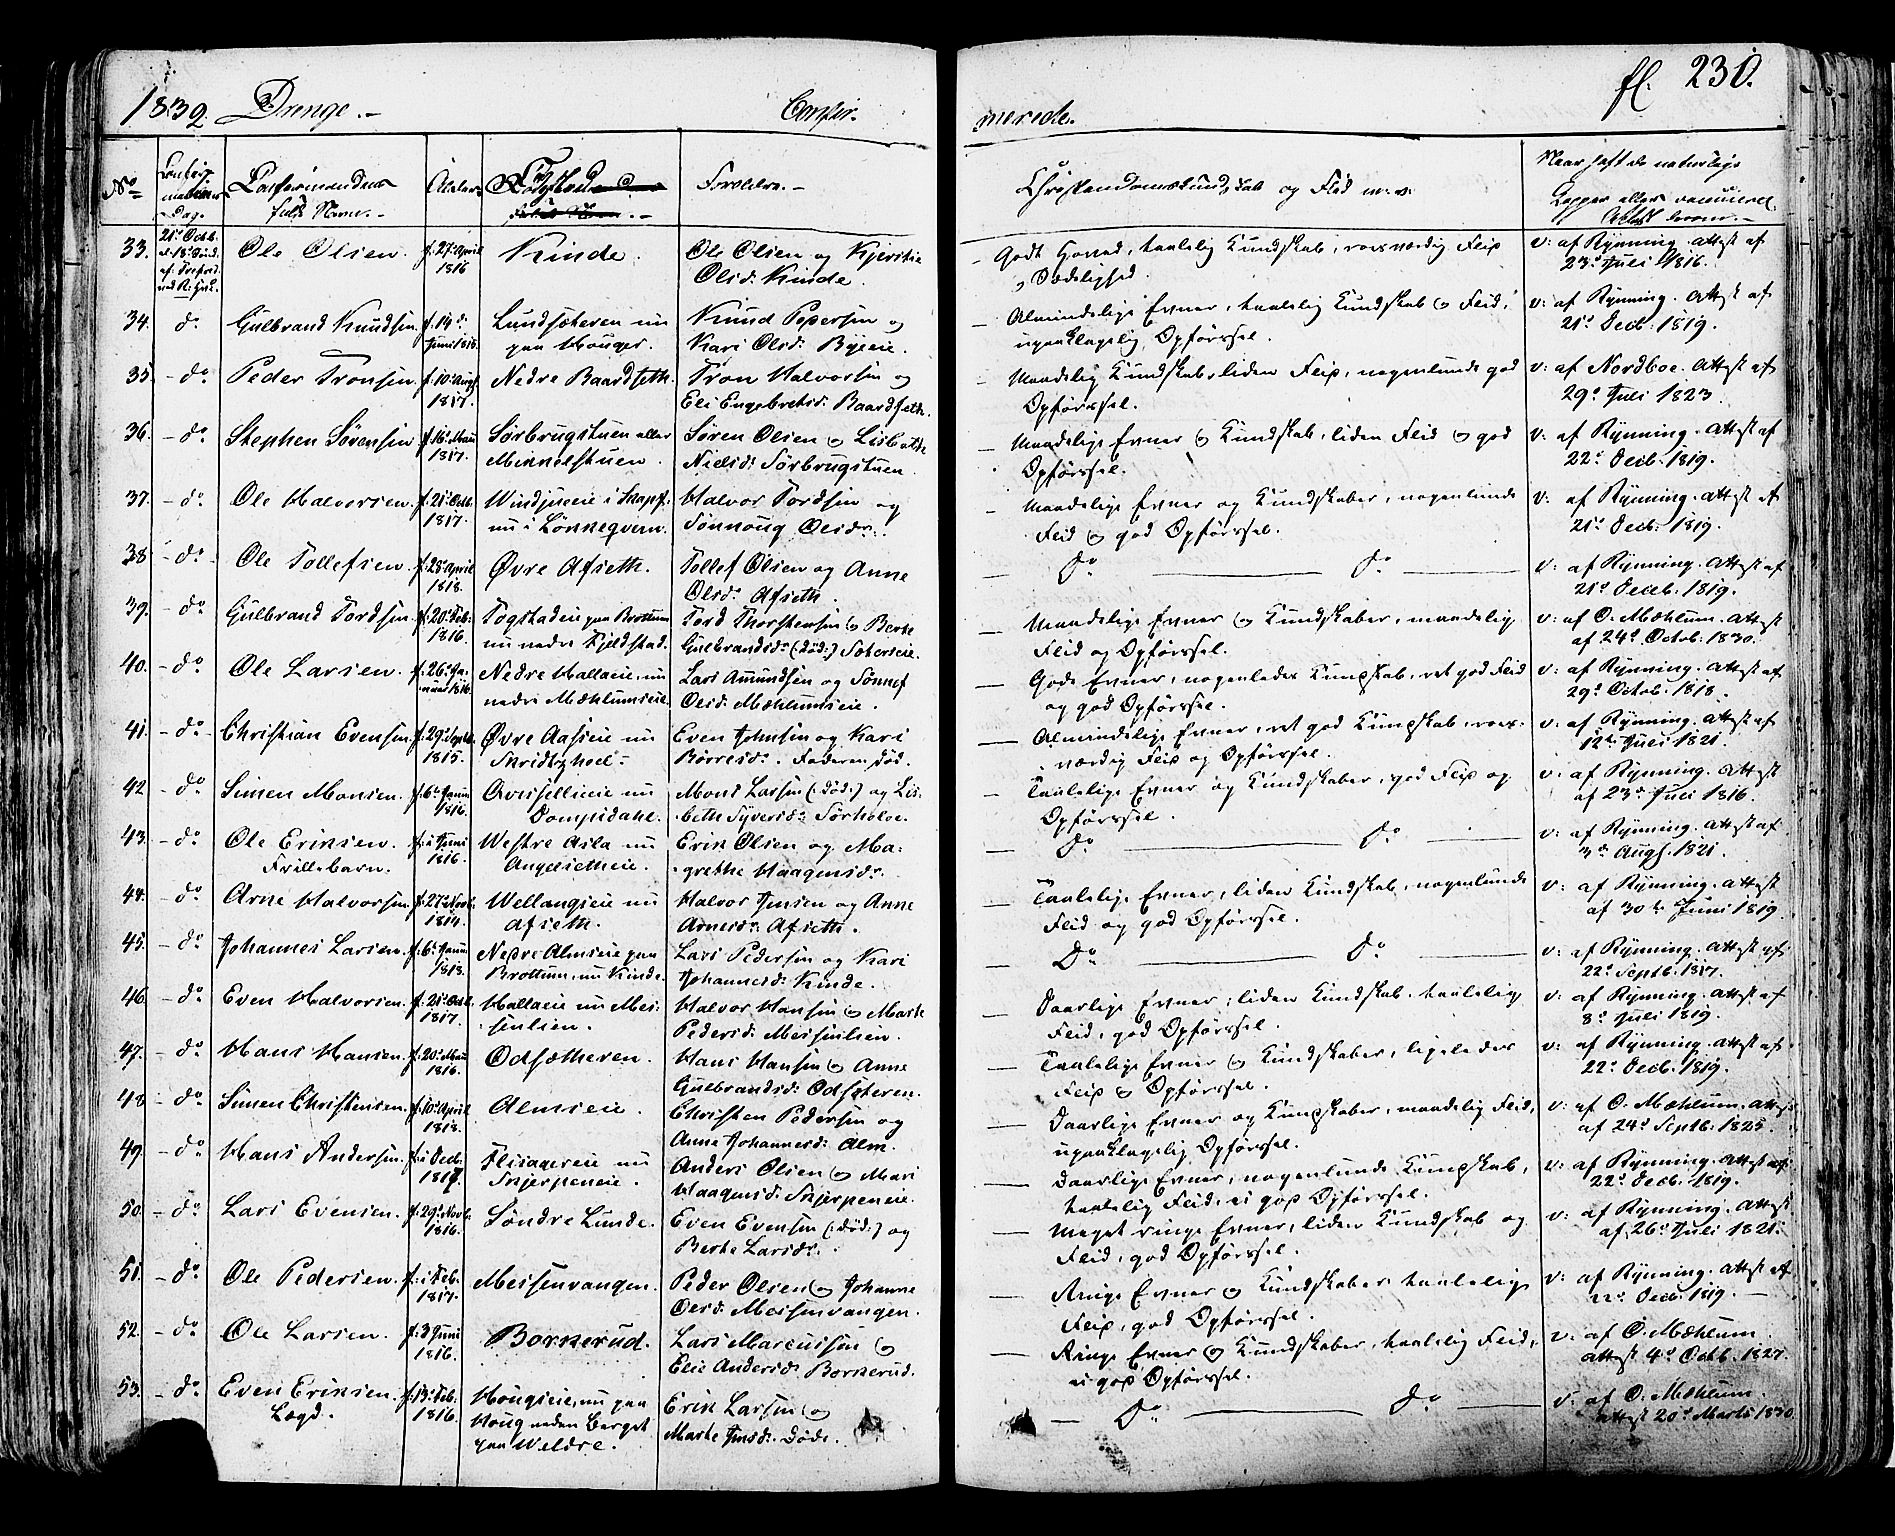 1832. Drenge.-
Confir-
merede.
fl. 230.
No
Confir-
mations
Dag.
Confirmandens
fulde Navn.-
Alder
Fødested
Forældre.-
Christendomskundskab og Flid m: v:
Naar havt de naturlige
Kopper eller vaccineret
33.
21de Octb.
Ole Olsen.
f. 27de April
1816
Kinde.
Ole Olsen og Kjerstie
Olsd: Kinde.
Godt Hoved, taalelig Kundskab, roesværdig Flid
Sædelighed.
v: af Rynning. Attest af
23de Juli 1816.
34.
do
Gulbrand Knudsen
f. 14de
Juni 1818.
Lundsæteren nu
paa Houger.
Knud Pedersen og
Kari Olsd: Byeeie.
Almindelige Evner, taalelig Kundskab og Flid,
upaaklagelig Opførssel.
v: af Rynning. Attest af
21de Decb. 1819.
35.
- do
Peder Tronsen.
f. 10de Aug.
1817.
Nedre Baardseth.
Tron Halvorsen og
Eli Engebretsd: Baardseth.
Maadelig Kundskab, liden Flid, nogenlunde god
Opførssel.
v: af Nordboe. Attest af
29de Juli 1823.
36.
- do
Stephen Sørensen
f. 16de Maii
1817.
Sørbrugstuen eller
Minnelstuen.
Søren Olsen og Lisbethe
Nielsd: Sørbrugstuen.
Maadelige Evner og Kundskab, liden Flid og god
Opførssel.
v: af Rynning. Attest af
22de Decb. 1819.
37.
- do
Ole Halvorsen.
f. 21de Octb.
1817.
nu i Lønneqvern.
Halvor Tordsen og
Sønnoug Olsdr.
Maadelige Evner og Kundskaber, nogenlunde
Flid og god Opførssel.
v: af Rynning. Attest af
21de Decb. 1819.
38
- do
Ole Tollefsen.
f. 25de April
1818.
Øvre Afseth.
Tollef Olsen og Anne
Olsdr. Afseth.
do do
v: af Rynning. Attest af
21de Decb. 1819.
39.
- do
Gulbrand Tordsen.
f. 20de Feb.
1816.
Togstadeie paa Brottum
nu nedre Kjeldstad.
Tord Thorstensen og Berte
Gulbrandsdr. (død:) Sæterseie.
Maadelige Evner og Kundskaber, maadelig
Flid og Opførssel.
v: af O. Mæhlum. Attest
af 24de Octob. 1830.
40.
- do
Ole Larsen.
f. 26de Ja-
nuar 1816.
Nedre Hallaeie, nu
nedre Mæhlumseie
Lars Amundsen og Sønnef
Olsd: Mæhlumseie.
Gode Evner, nogenledes Kundskab, ret god Flid
og god Opførssel.
v: af Rynning. Attest af
29de Octob. 1818.
41.
- do
Christian Evensen
f. 29de Septb.
1815.
Øvre Aaseie nu
Even Johnsen og Kari
Børresdr. Faderen død.
Almindelige Evner, ret god Kundskab, roes-
værdig Flid og Opførssel.
v: af Rynning. Attest af
12te Juli 1821.
42
- do
Simen Monsen.
f. 6te Janu.
1816.
nu
Dompidahl.
Mons Larsen (: død:) og Lis-
beth Syversdr. Sørholoe.
Taalelige Evner og Kundskaber, god Flid og
Opførssel.
v: af Rynning. Attest
af 23de Juli 1816.
43.
- do
Ole Eriksen.
Frillebarn.
f. i Juni
1816.
Westre Asla nu
Angelsetheie.
Erik Olsen og Ma-
grethe Haagensdr.
do do
v: af Rynning. Attest af
3de Aug. 1821.
44.
- do
Arne Halvorsen
f. 27de Novb.
1814.
Wellangseie nu
Afseth.
Halvor Jensen og Anne
Arnesdr. Afseth.
Taalelige Evner, liden Kundskab, nogenlunde
Flid og god Opførssel.
v: af Rynning. Attest
af 30te Juni 1819.
45.
- do
Johannes Larsen.
f. 6te Janu.
1813.
Nedre Almseie paa
Brottum, nu Kinde.
Lars Pedersen og Kari
Johannesd: Kinde.
Do do
v: af Rynning. Attest af
22de Septb. 1817.
46.
- do
Even Halvorsen.
f. 21de Octb.
1817.
Hallaeie nu Mes-
senlien.
Halvor Hansen og Marte
Pedersd: Messenlien.
Daarlige Evner, liden Kundskab, taalelig
Flid, god Opførssel.
v: af Rynning. Attest af
8de Juli 1819.
47.
- do
Hans Hansen.
f. 20de Maii
1816.
Odsætheren.
Hans Hansen og Anne
Gulbrandsd: Odsæteren.
Taalelige Evner og Kundskaber, ligeledes
Flid og Opførssel.
v: af Rynning. Attest af
22de Decb. 1819.
48
- do
Simen Christensen.
f. 10de April
1818.
Almseie.
Christen Pedersen og
Anne Johannesd: Alm.
Daarlige Evner og Kundskaber, maadelig Flid,
upaaklagelig Opførssel.
v: af O. Mæhlum. Attest
af 24de Septb. 1825.
49.
- do
Hans Andersen
f. i Decb.
1817.
Flisagereie nu
Skjerpeneie.
Anders Olsen og Mari
Haagensd: Skjerpeneie.
Daarlige Evner, nogenlunde Kundskab,
taalelig Flid, ei god Opførssel.
v: af Rynning. Attest af
22de Decb. 1819.
50.
- do
Lars Evensen.
f. 29de Novb.
1816.
Søndre Lunde.
Even Evensen (: død:) og
Berte Larsdr.
Meget ringe Evner, liden Kundskab og
Flid, god Opførssel.
v: af Rynning. Attest
af 26de Juli 1821.
51.
- do
Ole Pedersen.
f. i Feb.
1817.
Messenvangen.
Peder Olsen og Johanne
Olsd: Messenvangen.
Ringe Evner og Kundskaber, taalelig
Flid, god Opførssel.
v: af Rynning. Attest af
22de Decb. 1819.
52.
- do
Ole Larsen.
f. 3 Juni
1816.
Borkerud.
Lars Marcussen og
Elie Andersd: Borkerud.
Ringe Evner og Kundskaber, taalelig Flid,
ei god Opførssel.
v: af O. Mæhlum.
Attest 4de Octb. 1827.
53.
- do
Even Eriksen.
Lægd.
f. 13de Feb.
1816.
Hougseie, nu paa
Houg neden Berget
paa Weldre.
Erik Larsen og
Marte Jensd: Døde.
Do do
v: af O. Mæhlum.
Attest 20de Marts 1830